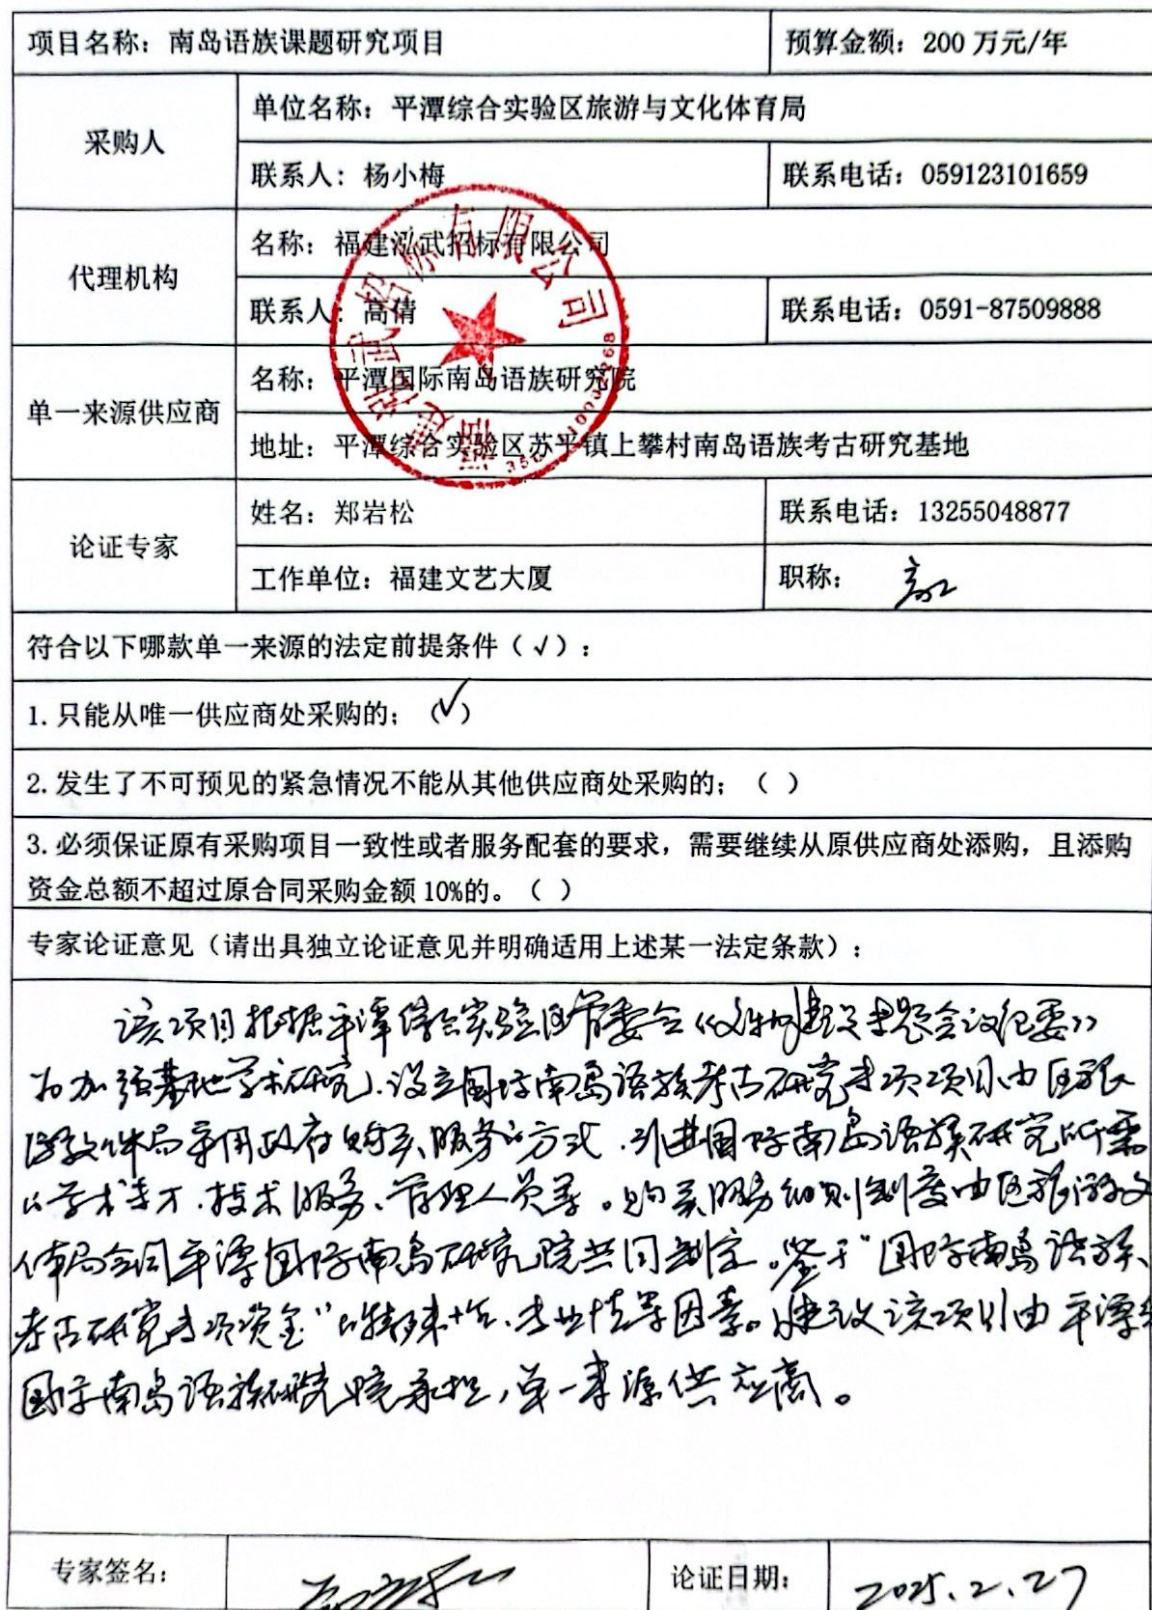 项目名称：南岛语族课题研究项目 预算金额：200万元/年
采购人
单位名称：平潭综合实验区旅游与文化体育局
联系人：杨小梅 联系电话：059123101659
代理机构
名称：福建泓武招标有限公司
联系人：高倩 联系电话：0591-87509888
福建泓武招标有限公司
单一来源供应商
名称：平潭国际南岛语族研究院
地址：平潭综合实验区苏平镇上攀村南岛语族考古研究基地
论证专家
姓名：郑岩松 联系电话：13255048877
工作单位：福建文艺大厦 职称：高工
符合以下哪款单一来源的法定前提条件（√）：
1.只能从唯一供应商处采购的；（√）
2.发生了不可预见的紧急情况不能从其他供应商处采购的；（ ）
3.必须保证原有采购项目一致性或者服务配套的要求，需要继续从原供应商处添购，且添购
资金总额不超过原合同采购金额10%的。（ ）
专家论证意见（请出具独立论证意见并明确适用上述某一法定条款）：
该项目根据平潭综合实验区管委会《文物建设专题会议纪要》
为加强基地学术研究、设立国际南岛语族考古研究专项项目由区旅
游文体局采用政府购买服务的方式，引进国际南岛语族研究所需
的学术专才、技术服务、管理人员等。购买服务细则制度由区旅游文
体局会同平潭国际南岛研究院共同制定。鉴于"国际南岛语族
考古研究专项资金"的特殊性、专业性等因素。建议该项目由平潭
国际南岛语族研究院承担，单一来源供应商。
专家签名： 论证日期：2025.2.27